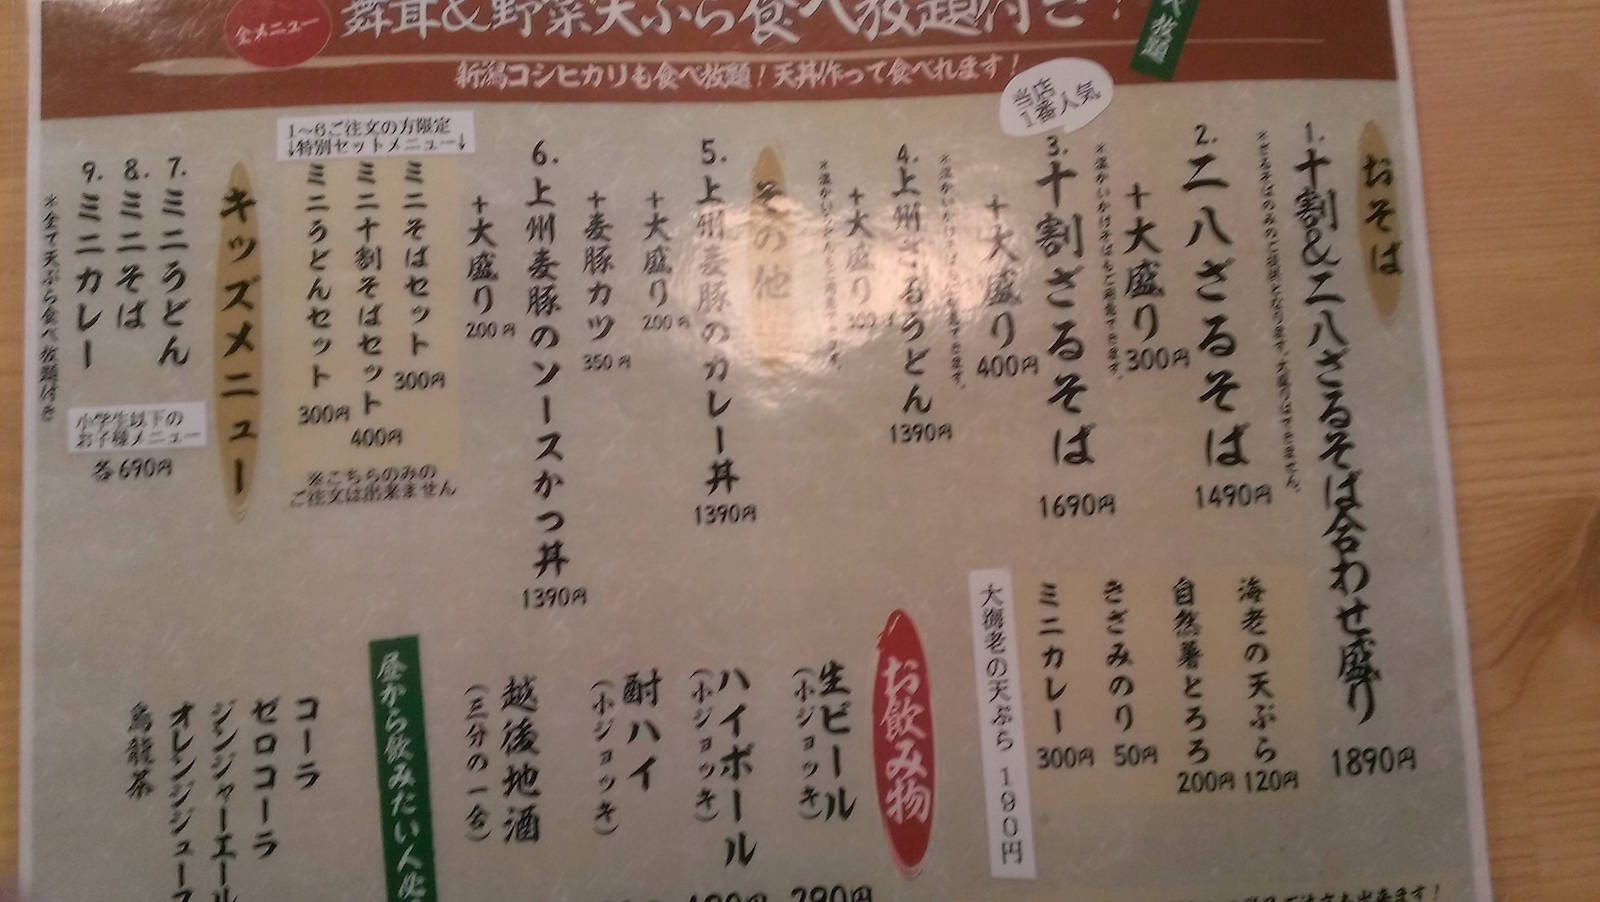 全メニュー
舞茸&野菜天ぷら食べ放題付き!
べ放題
新潟コシヒカリも食べ放題!天丼作って食べれます!
おそば
1.十割&二八ざるそば合わせ盛り 1890円
2.二八ざるそば 1490円
+大盛り 300円
当店
1番人気
3.十割ざるそば 1690円
+大盛り 400円
4.上州ざるうどん 1390円
+大盛り 300円
海老の天ぷら 120円
自然薯とろろ 200円
きざみのり 50円
ミニカレー 300円
大海老の天ぷら 190円
その他
5.上州麦豚のカレー丼 1390円
+大盛り 200円
+麦豚カツ 350円
6.上州麦豚のソースかつ丼 1390円
+大盛り 200円
1〜6ご注文の方限定
↓特別セットメニュー↓
ミニそばセット 300円
ミニ十割そばセット 400円
ミニうどんセット 300円
※こちらのみの
ご注文は出来ません
キッズメニュー
7.ミニうどん
8.ミニそば
9.ミニカレー
小学生以下の
お子様メニュー
各690円
※全て天ぷら食べ放題付き
お飲み物
生ビール
(小ジョッキ)
290円
ハイボール
(小ジョッキ)
酎ハイ
(小ジョッキ)
越後地酒
(三分の一合)
昼から飲みたい人必
コーラ
ゼロコーラ
ジンジャーエール
オレンジジュース
烏龍茶